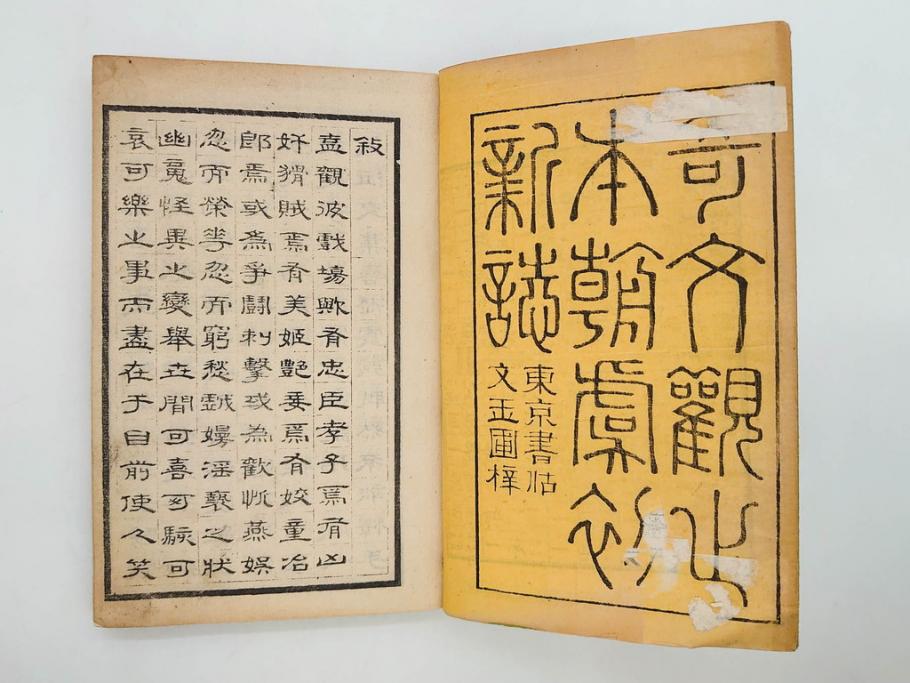 奇文觀止
本朝虞初
新誌
東京書估
文玉圃梓
敘
盍觀彼戲場歟有忠臣孝子焉有凶
奸猾賊焉有美姬艷妾焉有姣童冶
郎焉或為爭鬪刺擊或為歡忻燕娛
忽而榮華忽而窮愁戲嫚淫褻之狀
幽鬼怪異之變舉世間可喜可駭可
哀可樂之事而盡在于目前使人笑